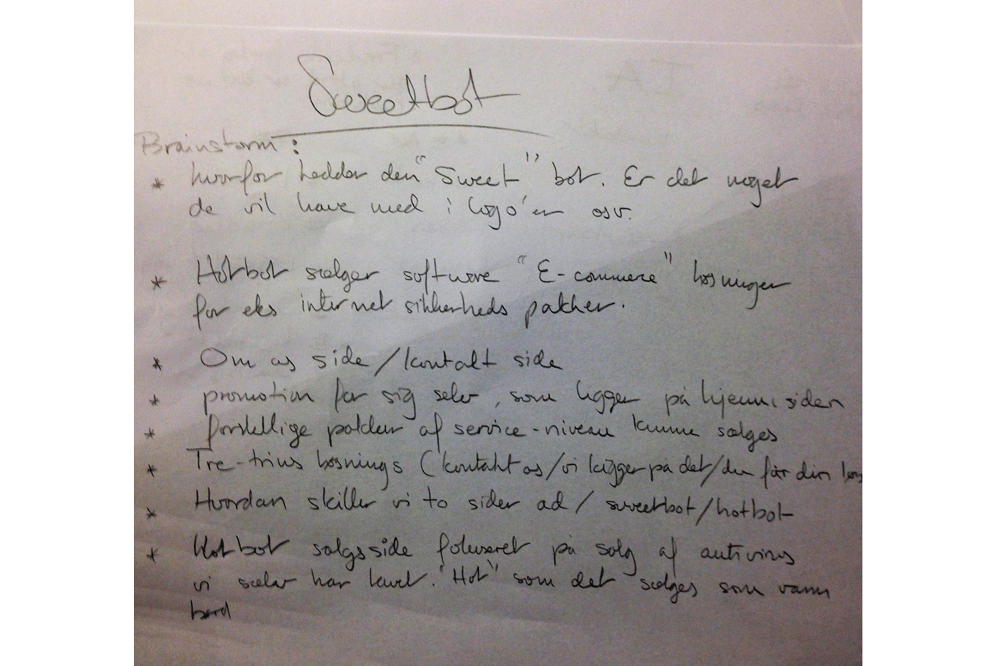 Sweetbot
Brainstorm:
* hvorfor hedder den "Sweet" bot. Er det noget
de vil have med i logo'en osv.
* Hotbot sælger software "E-commere" løsninger
for eks internet sikkerheds pakker.
* Om os side/kontakt side
* promotion for sig selv, som ligger på hjemmsiden
* forskellige pakker af service-niveau kunne sælges
* Tre-trins løsnings (kontakt os/vi kigger på det/du får din
* Hvordan skiller vi to sider ad / sweetbot/hotbot
* Hotbot salgsside fokuseret på salg af antivirus
vi selv har lavet. "Hot" som det sælges som varm
brød